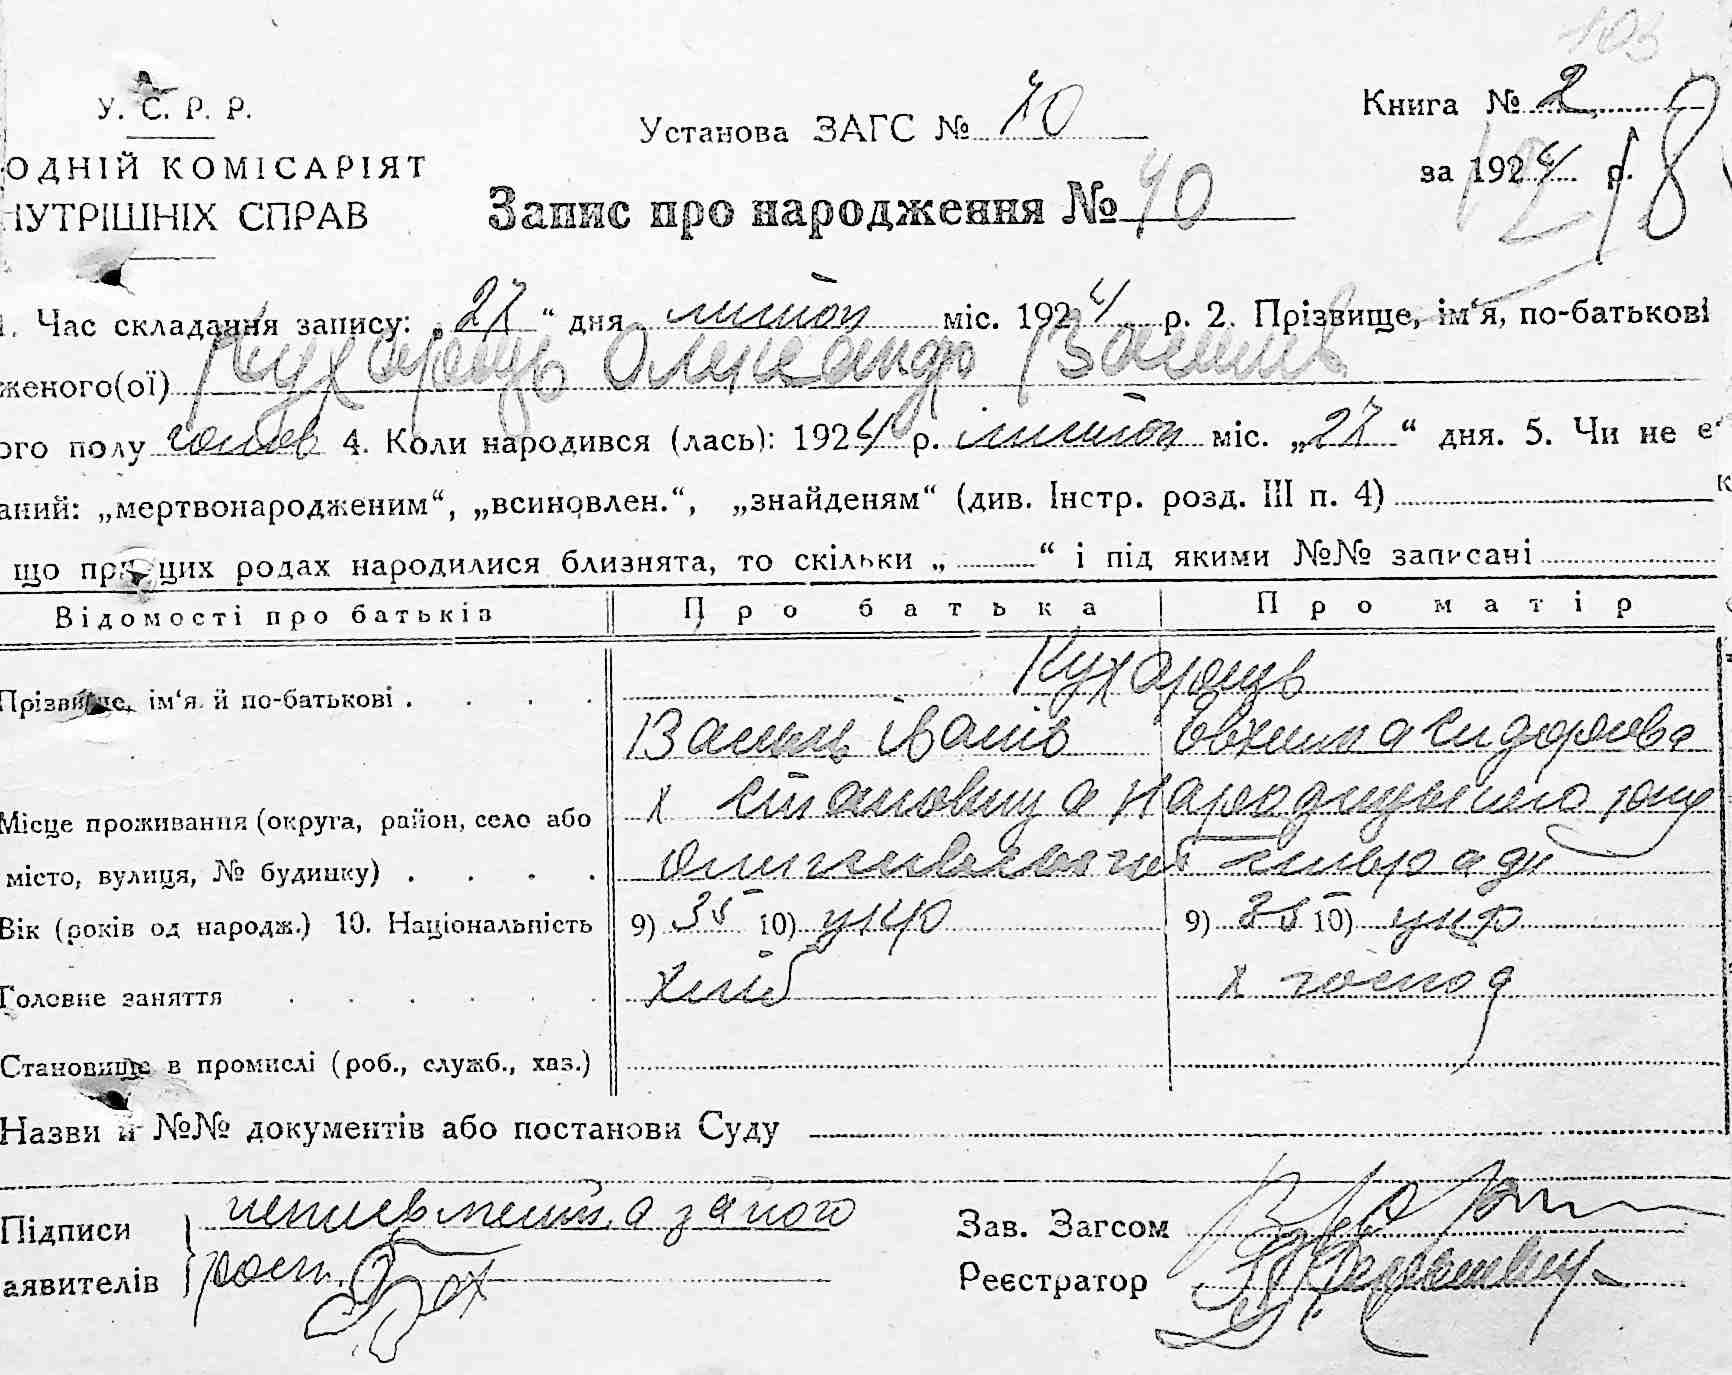 103
У. С. Р. Р.
ОДНІЙ КОМІСАРІЯТ
НУТРІШНІХ СПРАВ
Установа ЗАГС № 70
Запис про народження № 40
Книга № 2
за 1924 р.
1. Час складання запису: „27“ дня липня міс. 1924 р. 2. Прізвище, ім‘я, по-батькові
женого(ої) Кухарець Олександр Василів
ого полу чолов 4. Коли народився (лась): 1924 р. липня міс. „27“ дня. 5. Чи не є
аний: „мертвонародженим“, „всиновлен.“, „знайденям“ (див. Інстр. розд. III п. 4)
що при цих родах народилися близнята, то скільки „ “ і під якими №№ записані
Відомості про батьків Про батька Про матір
Прізвище, ім‘я й по-батькові Кухарець
Василь Іванів Євхима Сидорова
Місце проживання (округа, район, село або х Становища Народицького
місто, вулиця, № будинку) сільради
Вік (років од народж.) 10. Національність 9) 35 10) укр 9) 35 10) укр
Головне заняття хліб х господ
Становище в промислі (роб., служб., хаз.)
Назви й №№ документів або постанови Суду
Підписи а за його
аявителів росп.
Зав. Загсом
Реєстратор